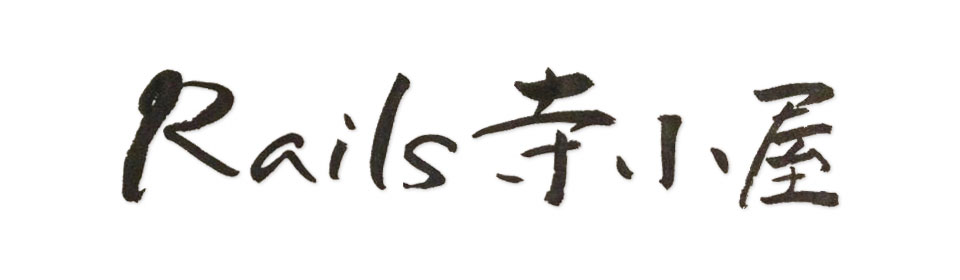 Rails寺小屋